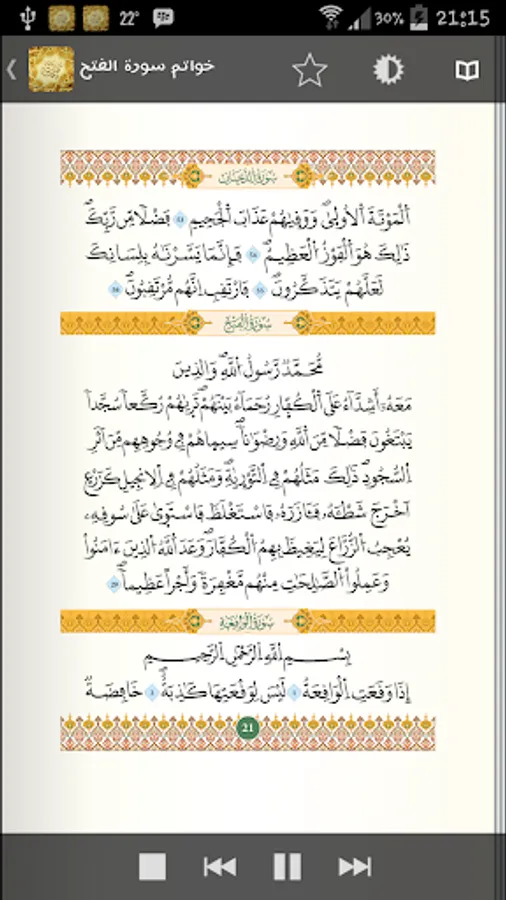 22° 30% 21:15
خواتم سورة الفتح
سورة الدخان
اَلْمَوْتَةَ اَلْأُولَىٰ وَوَقَىٰهُمْ عَذَابَ اَلْجَحِيمِ 53 فَضْلًا مِّن رَّبِّكَ
ذَٰلِكَ هُوَ اَلْفَوْزُ اَلْعَظِيمُ 54 فَإِنَّمَا يَسَّرْنَٰهُ بِلِسَانِكَ
لَعَلَّهُمْ يَتَذَكَّرُونَ 55 فَارْتَقِبِ اِنَّهُم مُّرْتَقِبُونَ 56
سورة الفتح
مُّحَمَّدٌ رَّسُولُ اُللَّهِ وَالذِينَ
مَعَهُۥ أَشِدَّآءُ عَلَى اَلْكُفَّارِ رُحَمَآءُ بَيْنَهُمْ تَرَىٰهُمْ رُكَّعاً سُجَّداً
يَبْتَغُونَ فَضْلًا مِّنَ اَللَّهِ وَرِضْوَٰناً سِيمَاهُمْ فِي وُجُوهِهِم مِّنَ اَثَرِ
اِلسُّجُودِ ذَٰلِكَ مَثَلُهُمْ فِي اِلتَّوْرَىٰةِ وَمَثَلُهُمْ فِي اِلِانجِيلِ كَزَرْعٍ
اَخْرَجَ شَطْـَٔهُۥ فَـَٔازَرَهُۥ فَاسْتَغْلَظَ فَاسْتَوَىٰ عَلَىٰ سُوقِهِۦ
يُعْجِبُ اُلزُّرَّاعَ لِيَغِيظَ بَهِمُ اُلْكُفَّارَ وَعَدَ اَللَّهُ اُلذِينَ ءَامَنُواْ
وَعَمِلُواْ اُلصَّٰلِحَٰتِ مِنْهُم مَّغْفِرَةً وَأَجْراً عَظِيماً 29
سورة الواقعة
بِسْمِ اِللَّهِ اِلرَّحْمَٰنِ اِلرَّحِيمِ
إِذَا وَقَعَتِ اِلْوَاقِعَةُ 1 لَيْسَ لِوَقْعَتِهَا كَاذِبَةٌ 2 خَافِضَةٌ
21